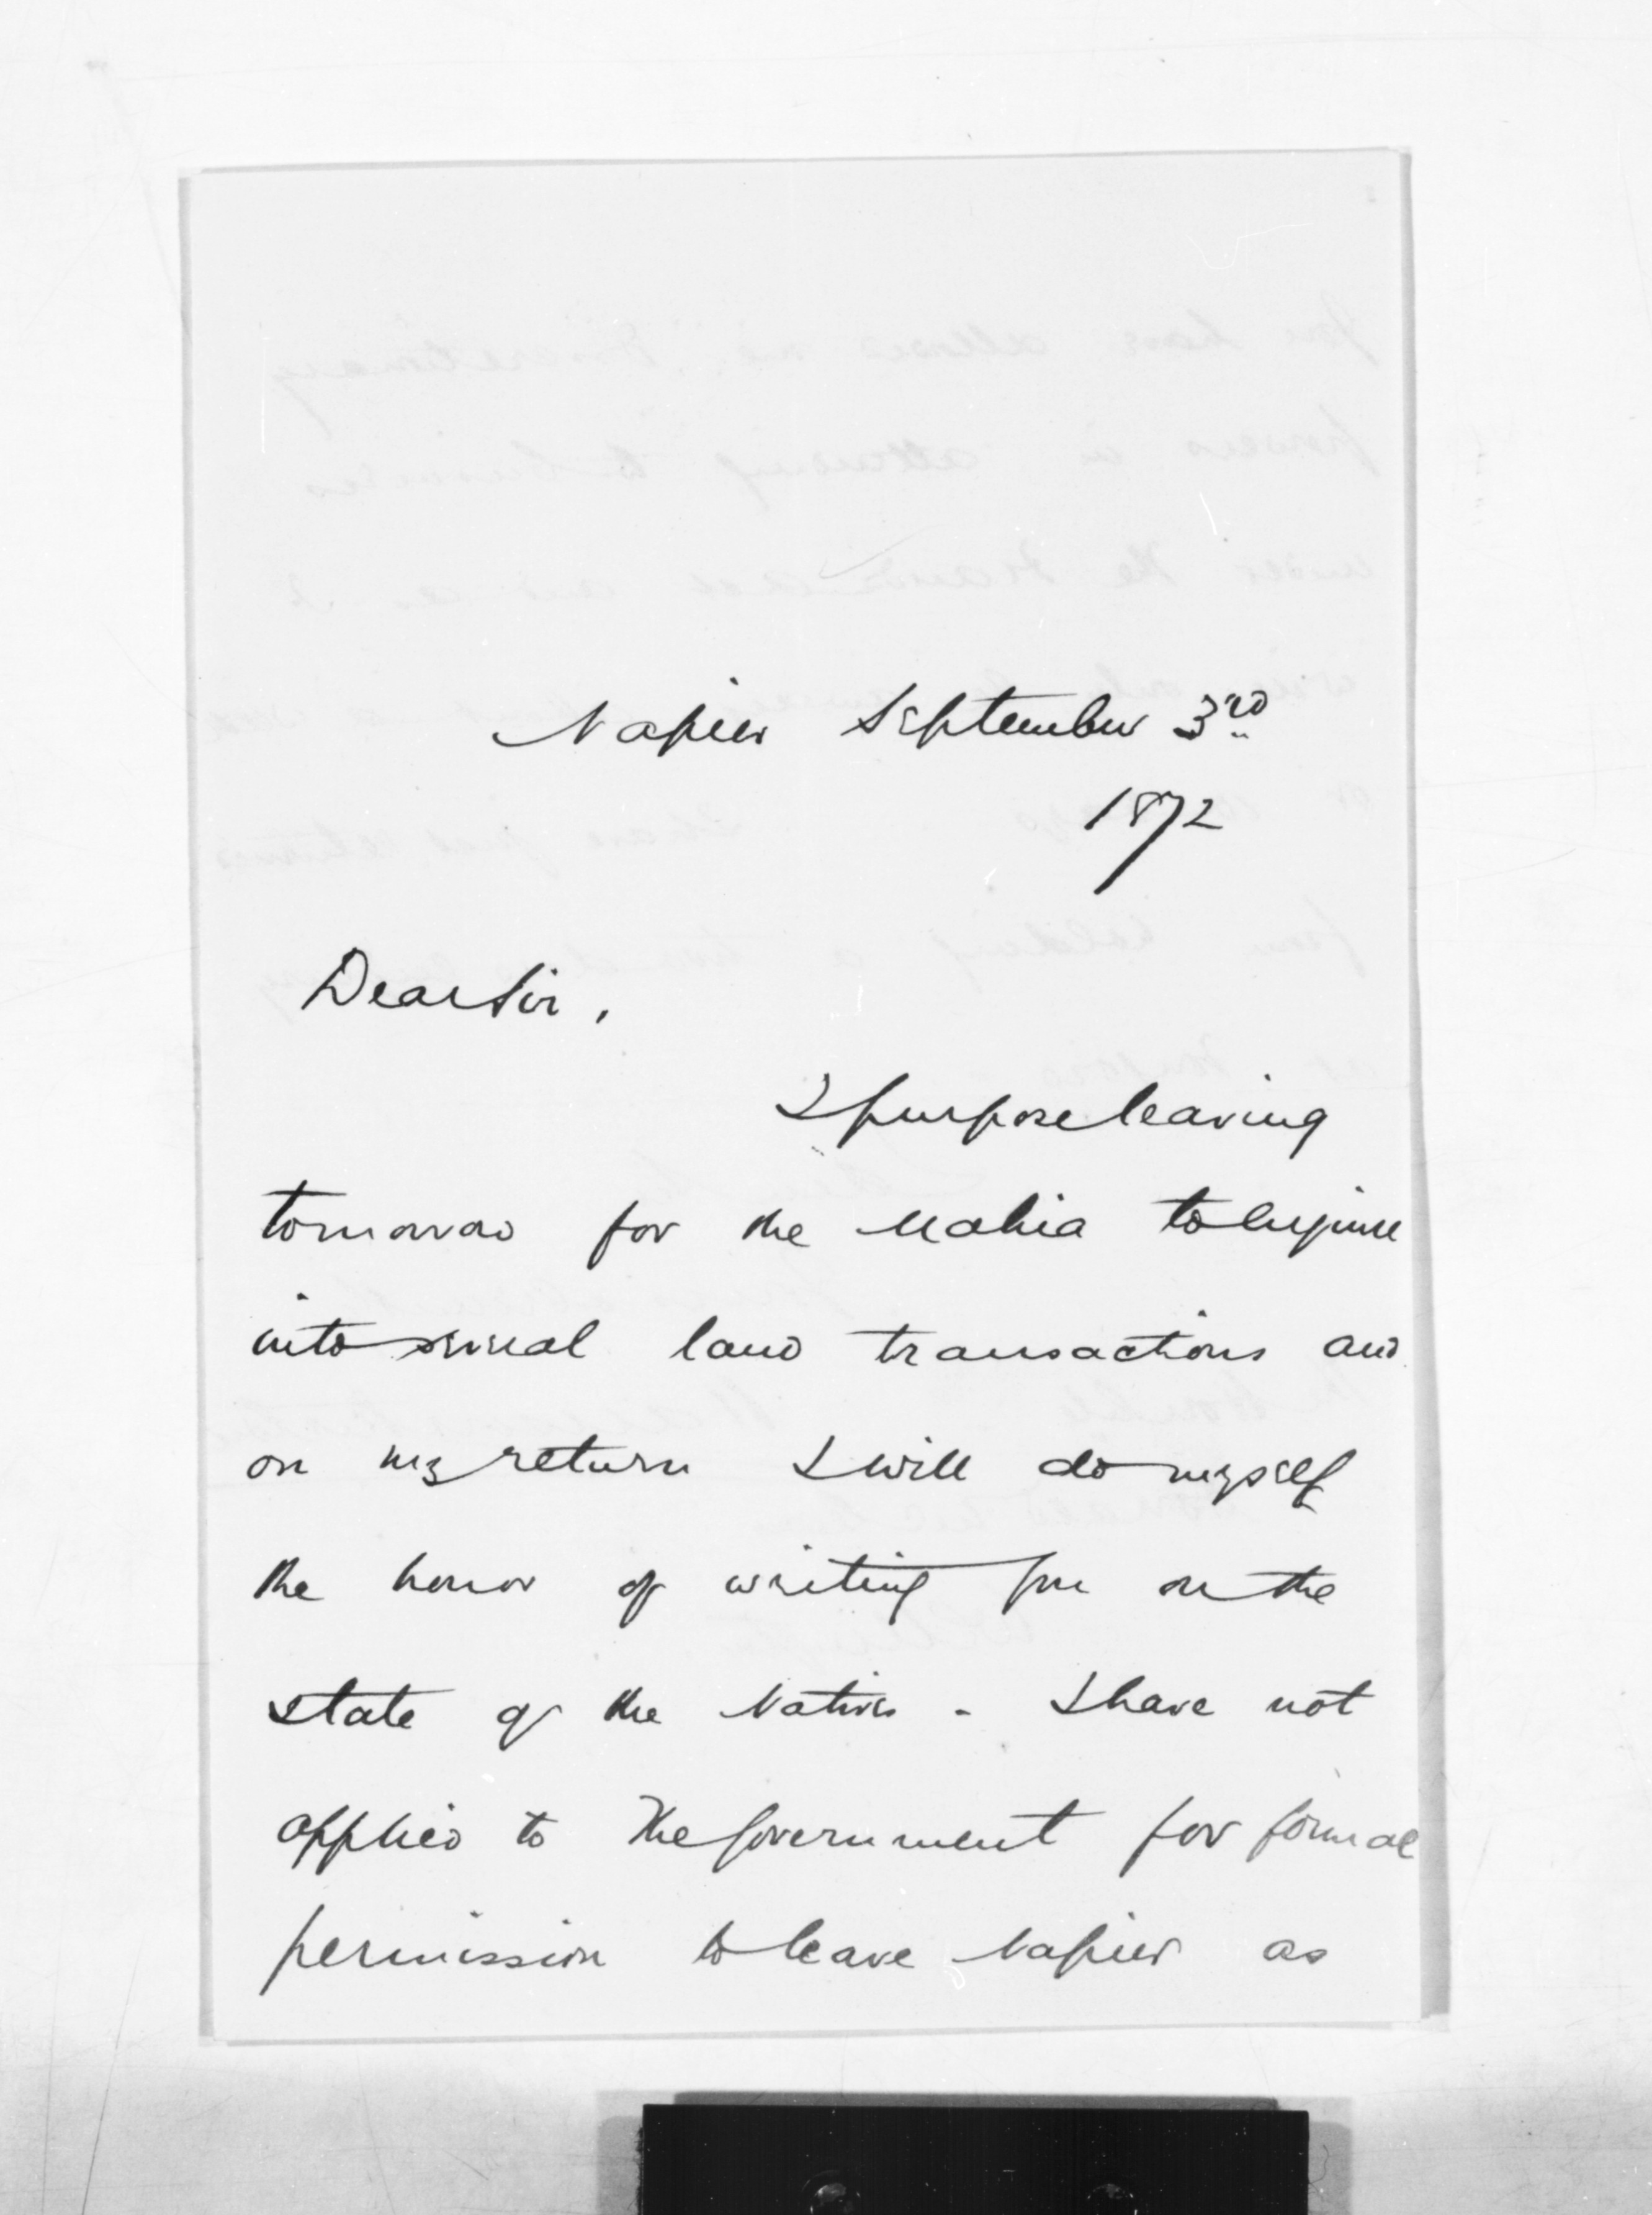 Napier September 3rd
1872
Dear Sir,
I purpose leaving
tomorrow for the Mahia to enquire
into several land transactions and
on my return I will do myself
the honor of writing you on the
state of the Natives - I have not
applied to the Government for formal
permission to leave Napier as